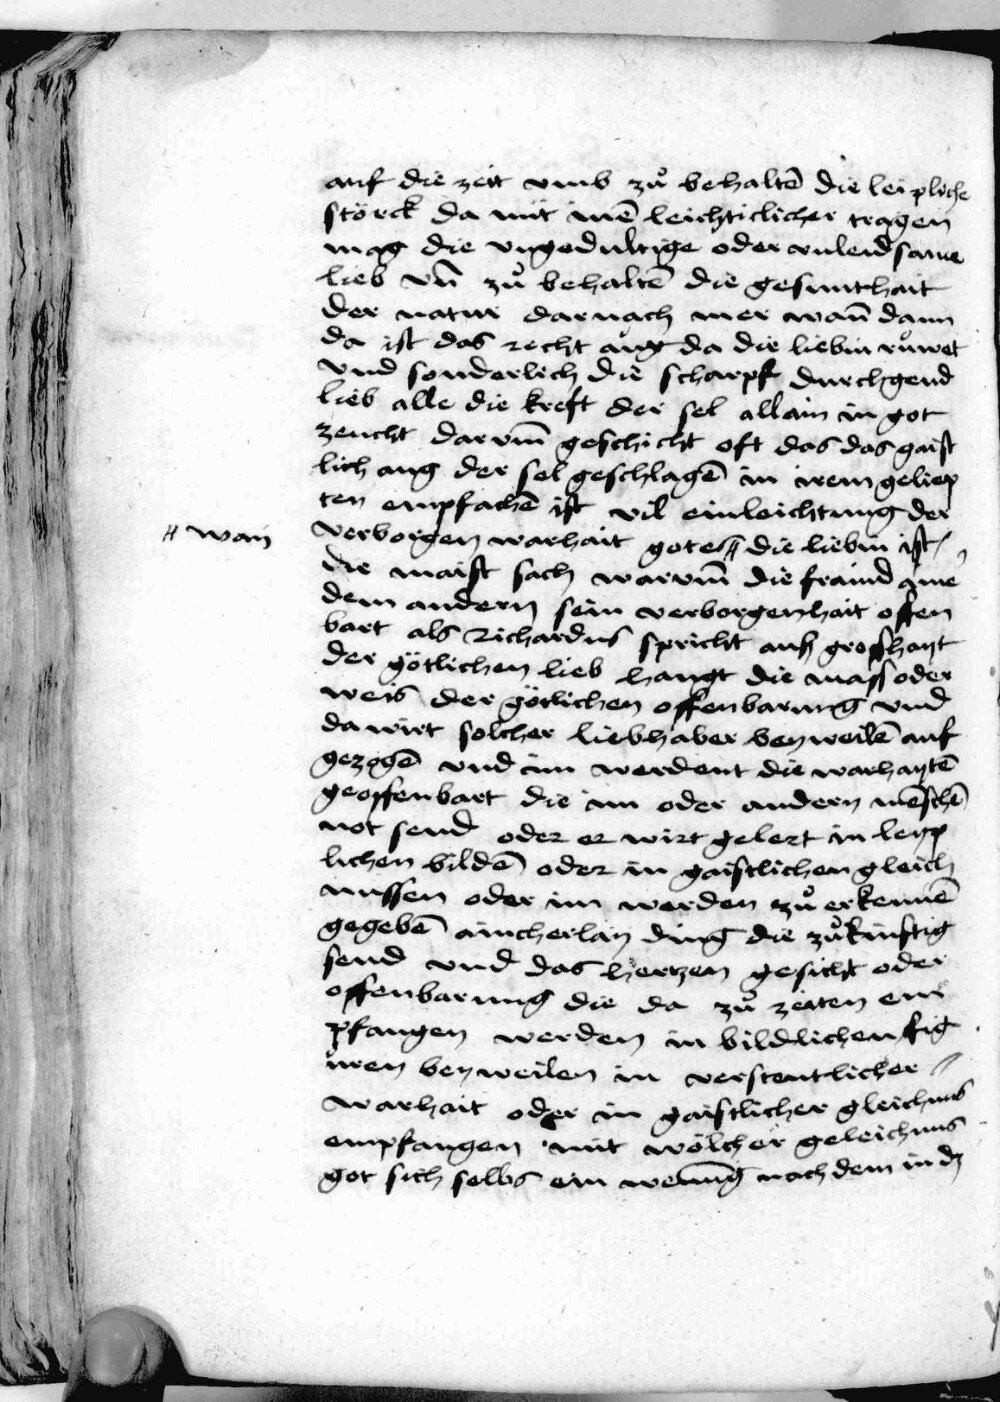 auf die zeit vmb zů behaltē die leipliche
störck da mit mē leichticlicher tragen
mag die vngedultige oder vnleidsame
lieb vn̄ zů behaltē die gesunthait
der natur darnach mer wan̄ dann
da ist das recht aug da die liebin růwet
vnd sonderlich die scharpf durchgend
lieb alle die kreft der sel allain in got
zeucht darvm̄ geschicht oft das das gaist
lich aug der sel geschlagē in irem geliep
ten empfachē ist vil einleichtung der
verborgen warhait gotes // die liebin ist
// wan
die maist sach warvm̄ die fraind ainē
dem andern sein verborgenhait offen
bart als Richardus spricht auß großhayt
der götlichen lieb hangt die mass oder
weis der götlichen offenbarung vnd
da wirt solcher liebhaber beyweilē auf
gezogē vnd im werdent die warhaytē
geoffenbart die im oder andern mēschē
not send oder er wirt gelert in leyp
lichen bildē oder in gaistlichen gleich
nussen oder im werden zů erkennē
gegebē aincherlay ding die zůkinftig
send vnd das hertzen gesicht oder
offenbarung die da zů zeiten em
pfangen werden in bildlichen fig
uren beyweilen in verstentlicher
warhait oder in gaistlicher gleichnus
empfangen mit wölcher geleichnus
got sich selbs ein wenig nach dem in dz